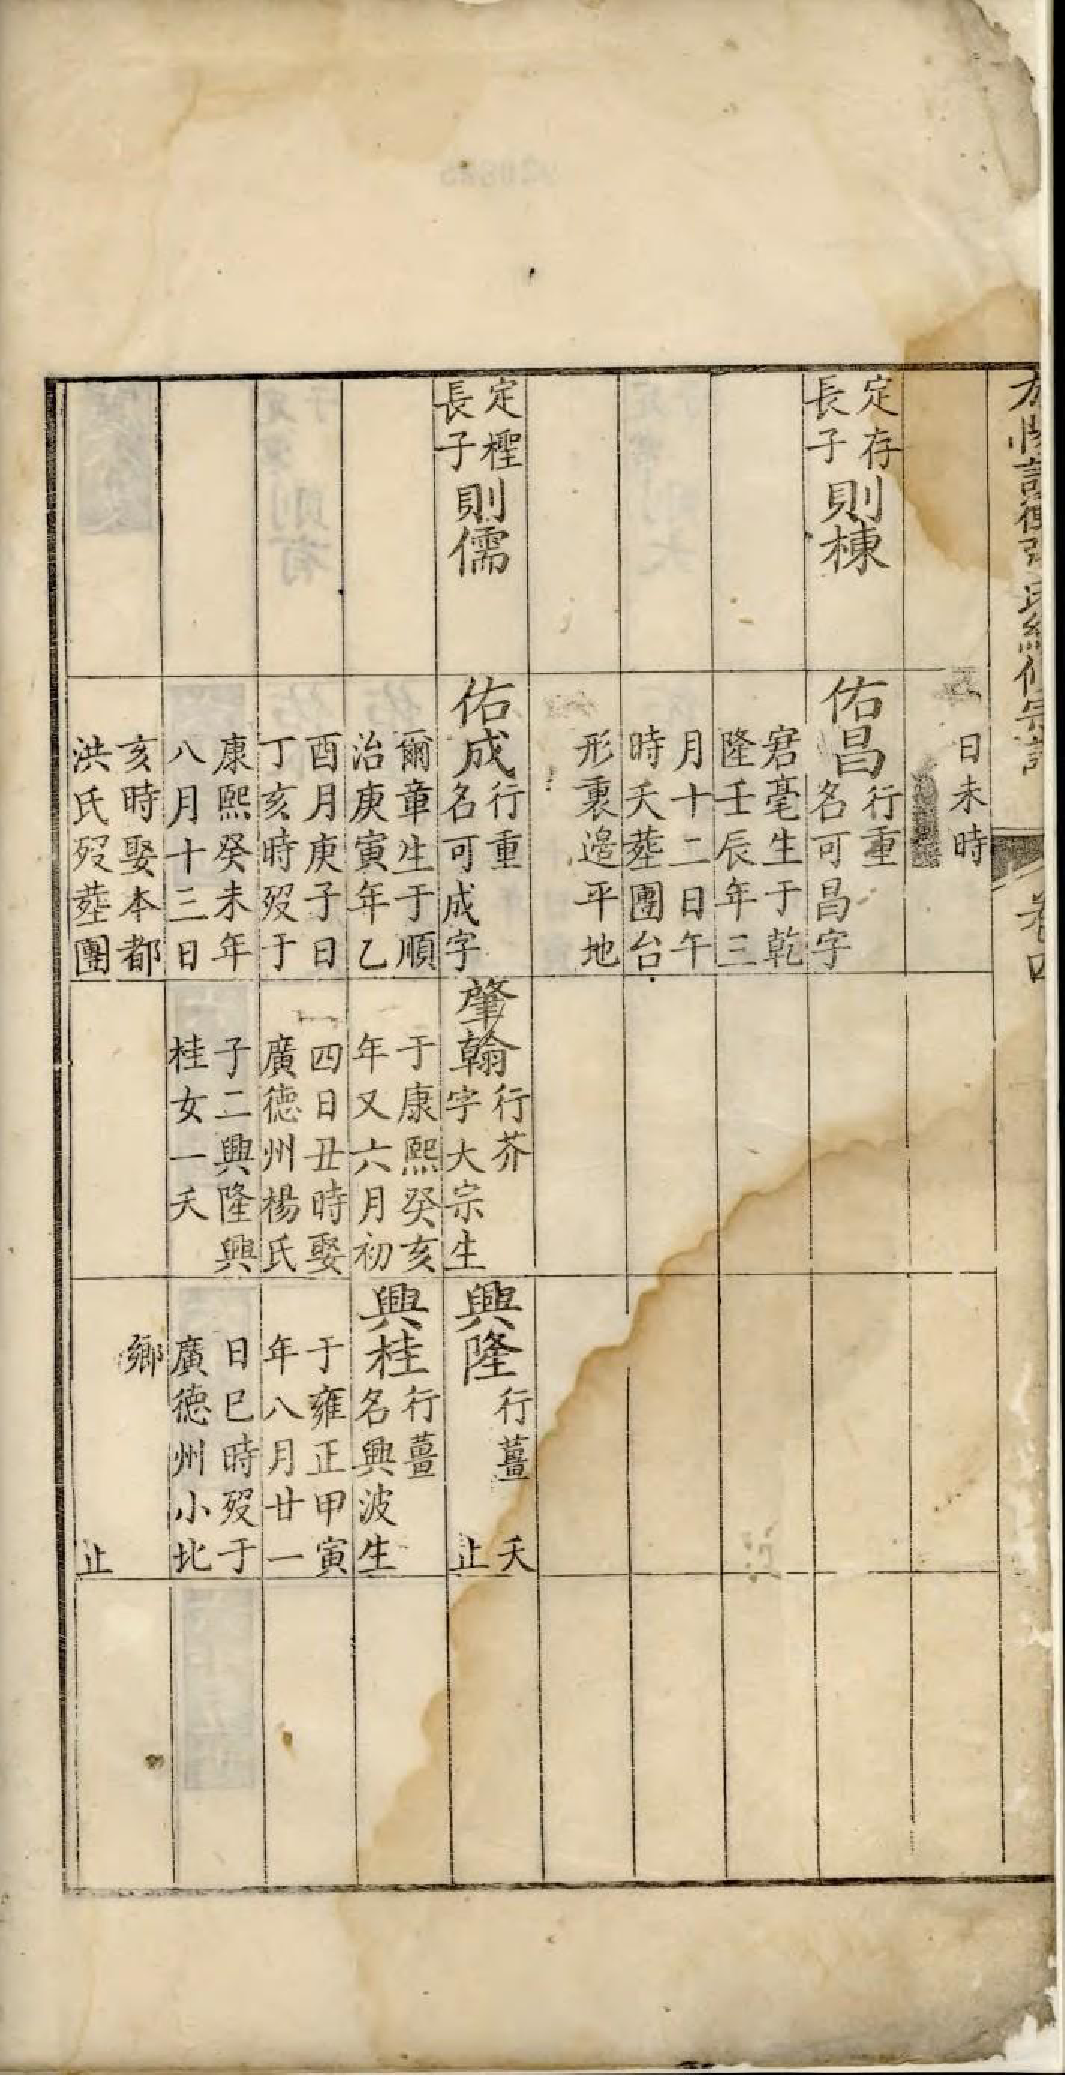 卷四
日未時
定存
長子
則棟
佑昌
行重
名可昌字
宭毫生于乾
隆壬辰年三
月十二日午
時夭塟團台
形裏邉平地
定檉
長子
則儒
佑成
行重
名可成字
爾章生于順
治庚寅年乙
酉月庚子日
丁亥時歿于
康熙癸未年
八月十三日
亥時娶本都
洪氏歿塟團
肇翰
行芥
字大宗生
于康熙癸亥
年又六月初
四日丑時娶
廣德州楊氏
子二興隆興
桂女一夭
興隆
行薑 夭
止
興桂
行薑
名興波生
于雍正甲寅
年八月廿一
日巳時歿于
廣德州小北
鄉
止